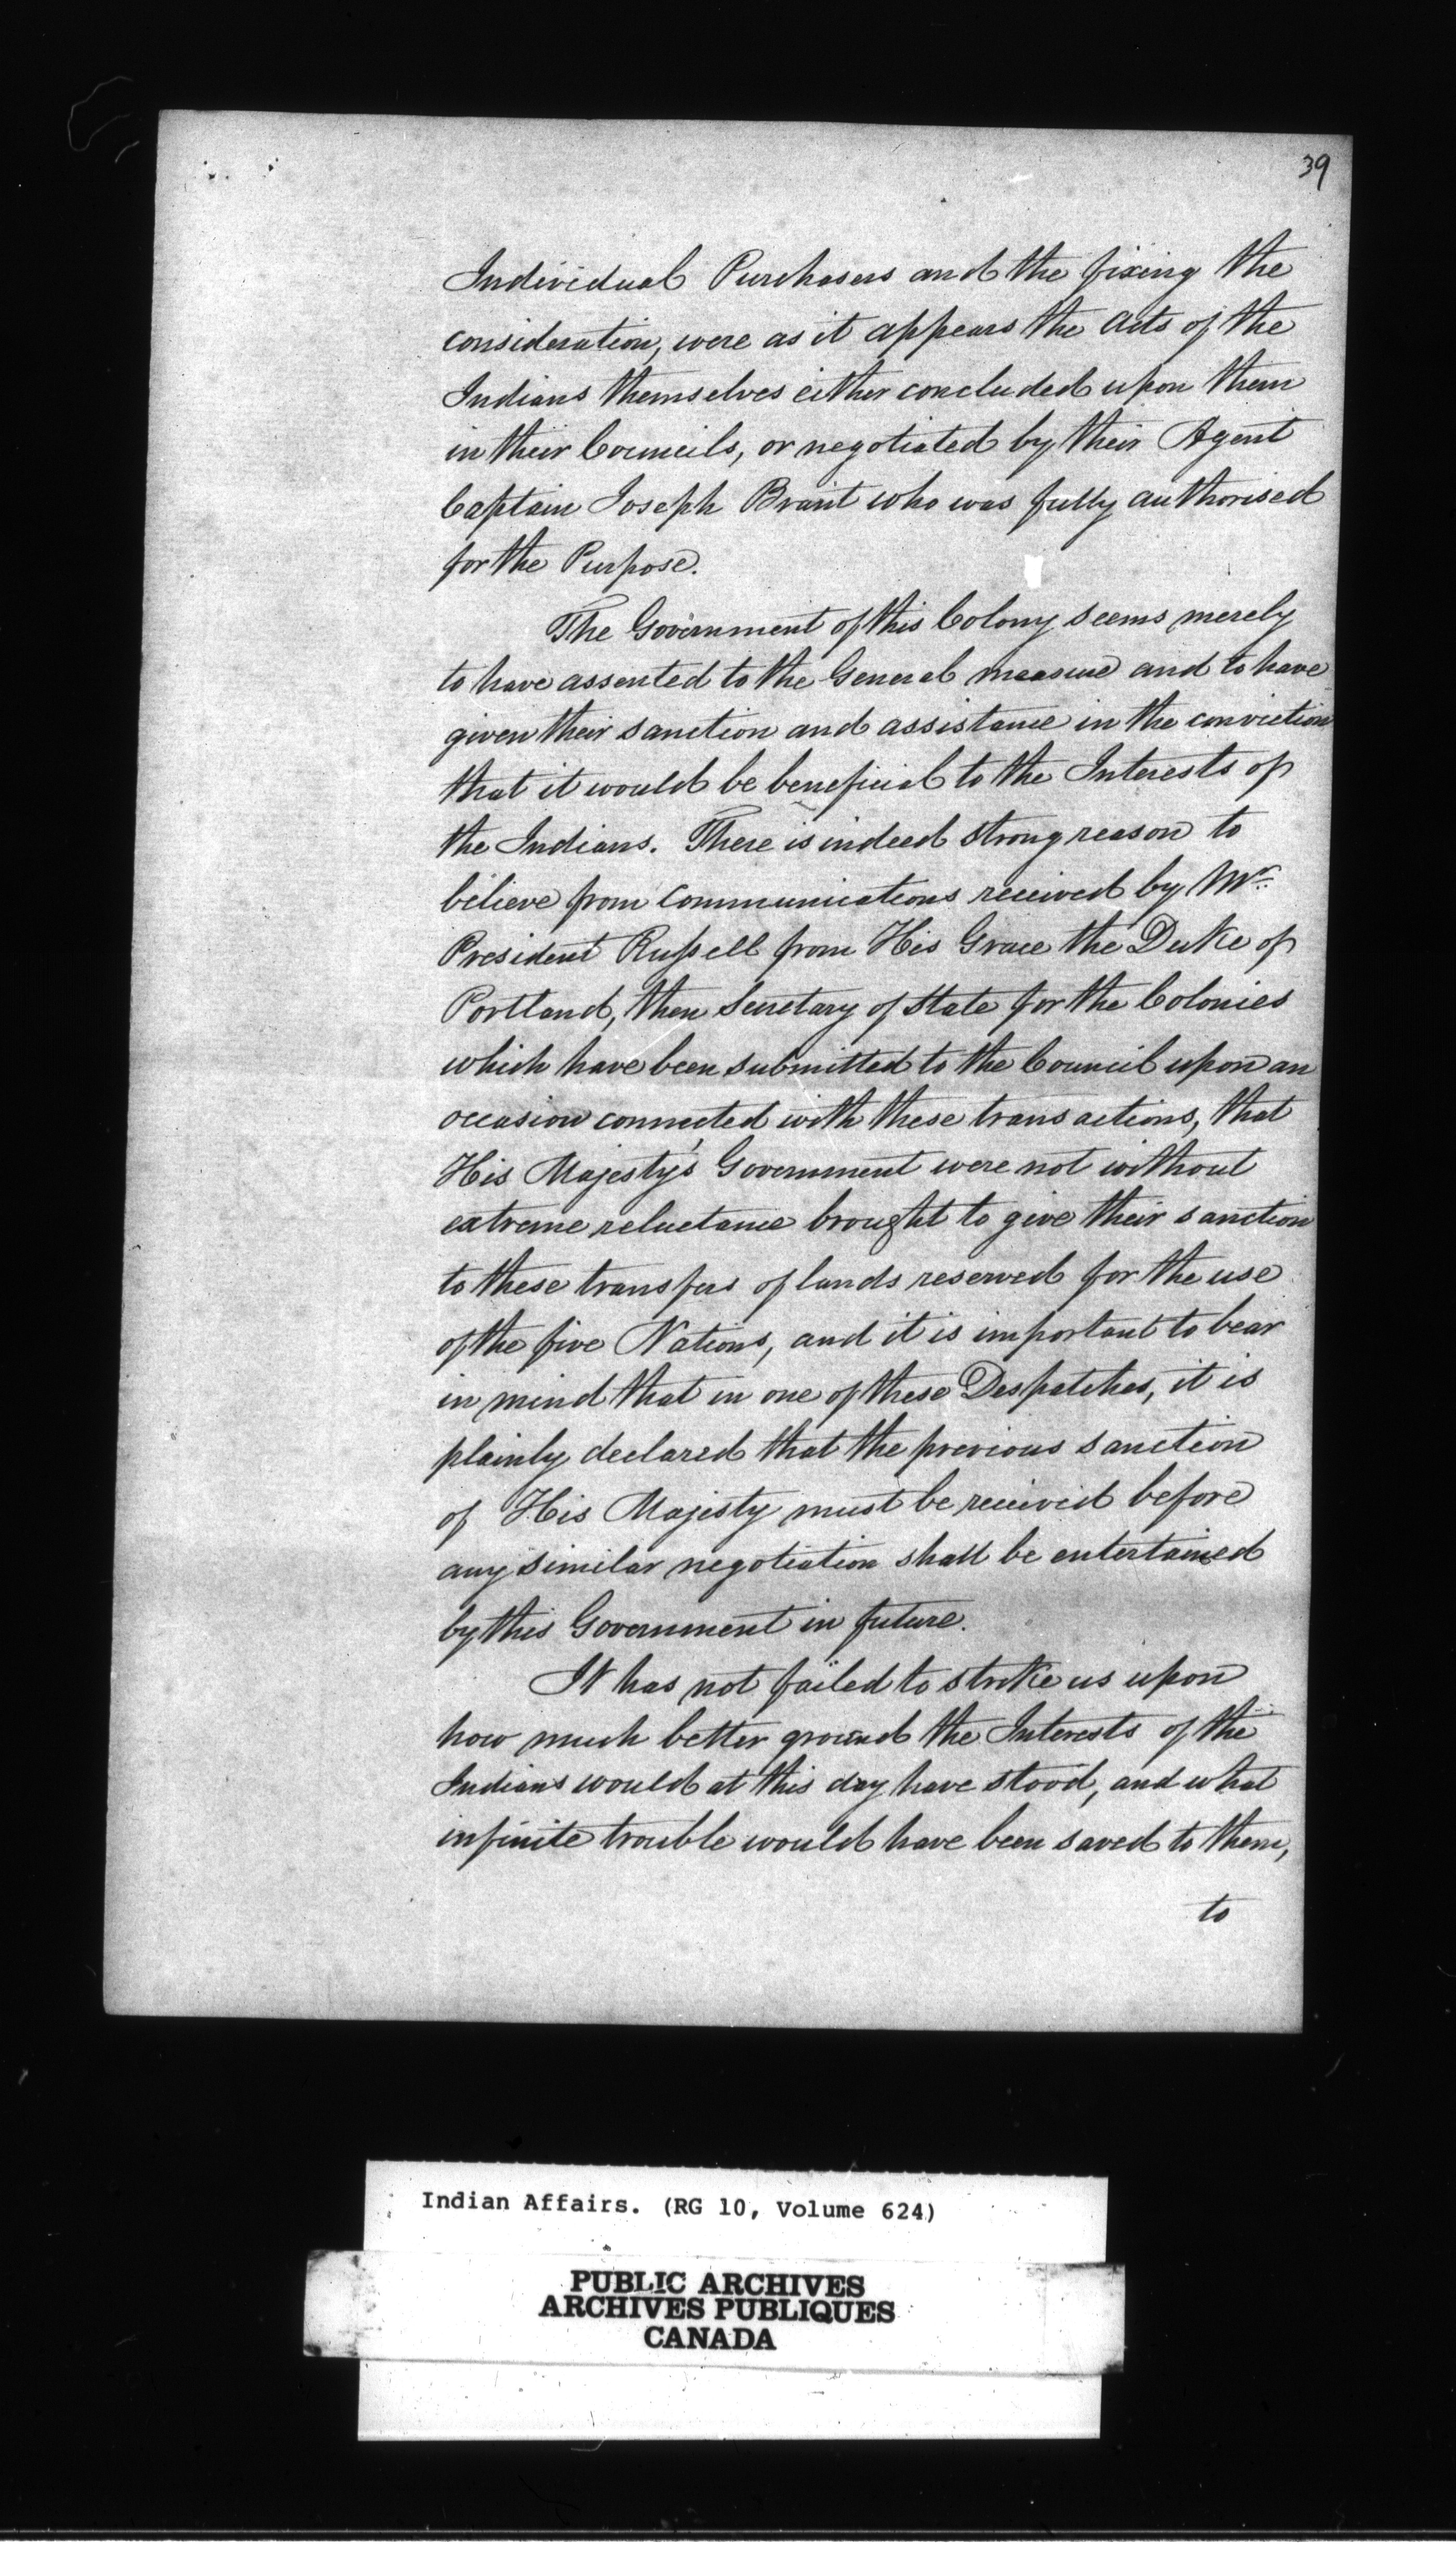 39
Individual Purchasers and the fixing the
consideration, were as it appears the acts of the
Indians themselves either concluded upon them
in their Councils, or negotiated by their Agent
Captain Joseph Brant who was fully authorised
for the Purpose.
The Government of this Colony seems merely
to have assented to the General measure and to have
given their sanction and assistance in the conviction
that it would be beneficial to the Interests of
the Indians. There is indeed strong reason to
believe from Communications received by Mr.
President Russell from His Grace the Duke of
Portland, then Secretary of State for the Colonies
which have been submitted to the Council upon an
occasion connected with these transactions, that
His Majesty's Government were not without
extreme reluctance brought to give their sanction
to these transfers of lands reserved for the use
of the five Nations, and it is important to bear
in mind that in one of these Despatches, it is
plainly declared that the previous sanction
of His Majesty must be received before
any similar negotiation shall be entertained
by this Government in future.
It has not failed to strike us upon
how much better ground the Interests of the
Indians would at this day have stood, and what
infinite trouble would have been saved to them,
to
Indian Affairs. (RG 10, Volume 624)
PUBLIC ARCHIVES
ARCHIVES PUBLIQUES
CANADA